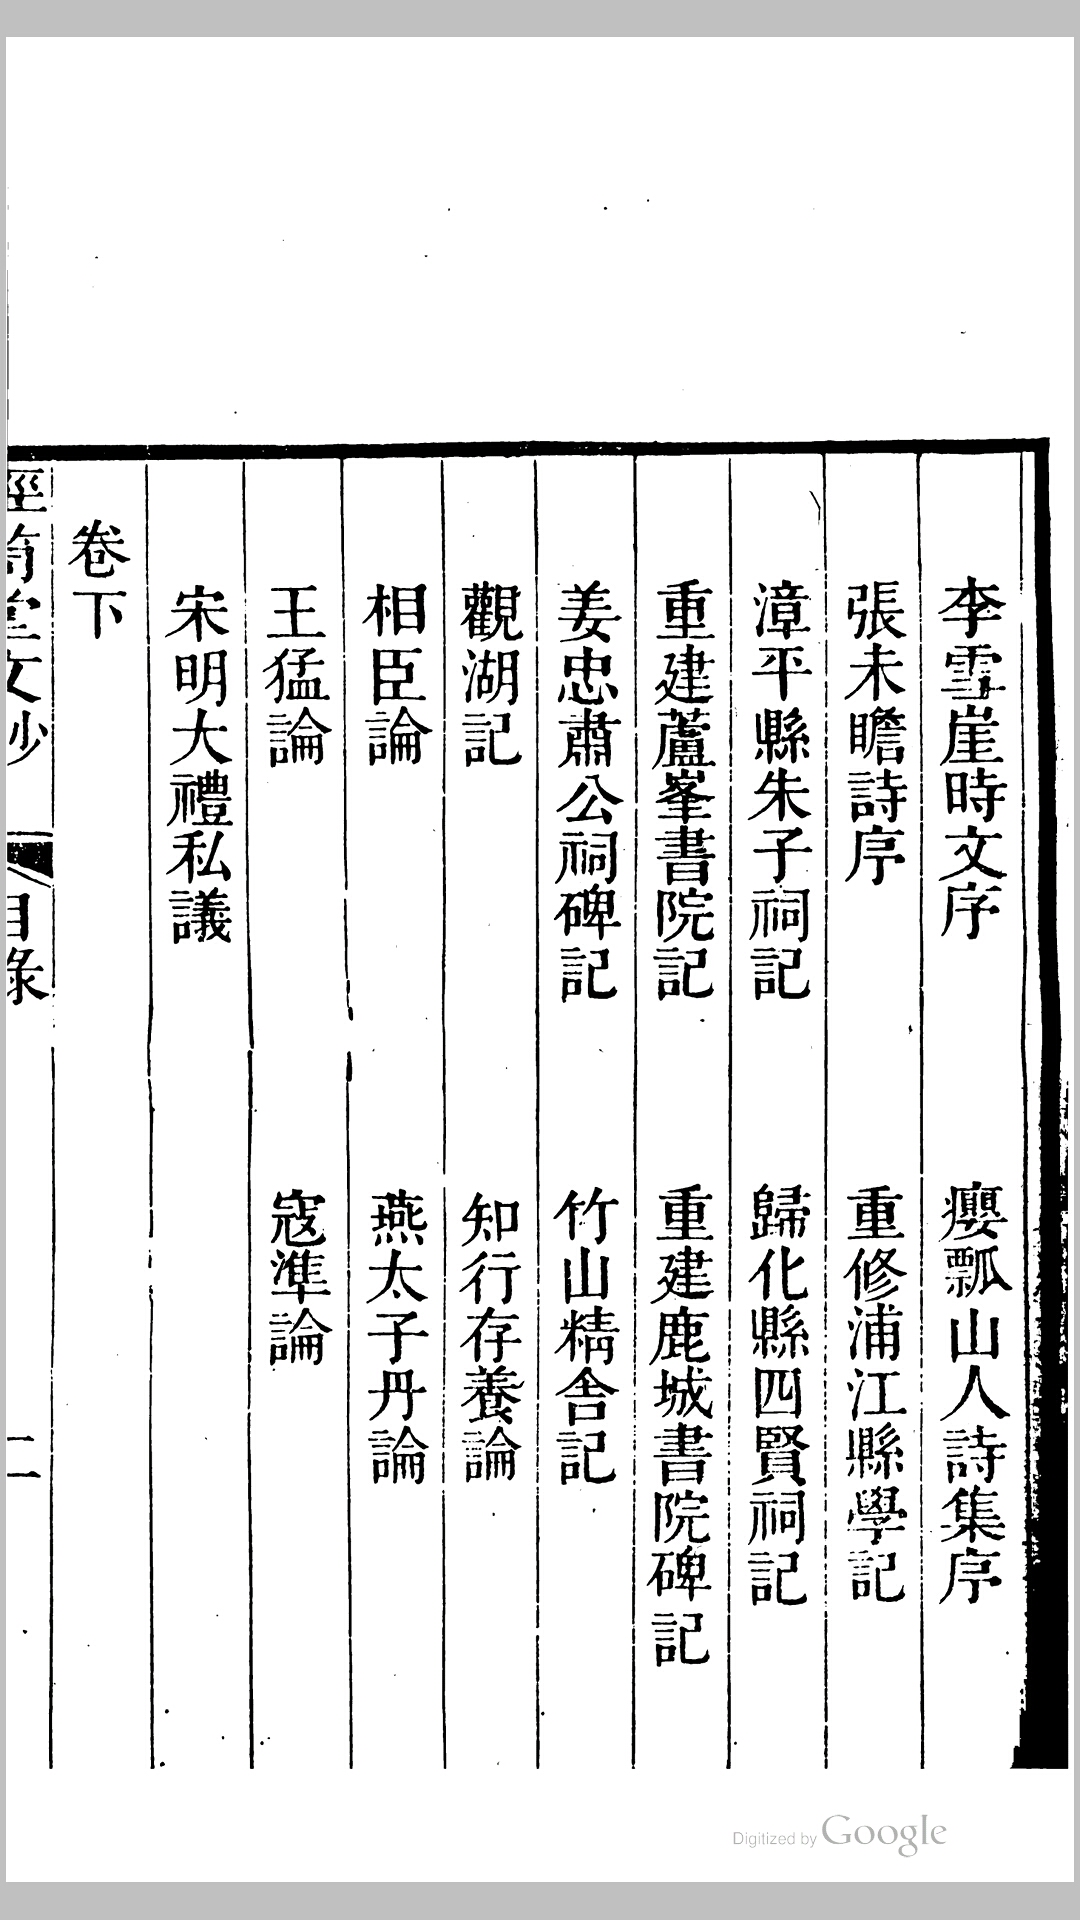 李雪崖時文序 癭瓢山人詩集序
張未瞻詩序 重修浦江縣學記
漳平縣朱子祠記 歸化縣四賢祠記
重建蘆峯書院記 重建鹿城書院碑記
姜忠肅公祠碑記 竹山精舍記
觀湖記 知行存養論
相臣論 燕太子丹論
王猛論 寇準論
宋明大禮私議
卷下
堂文鈔 目錄 二
Digitized by Google